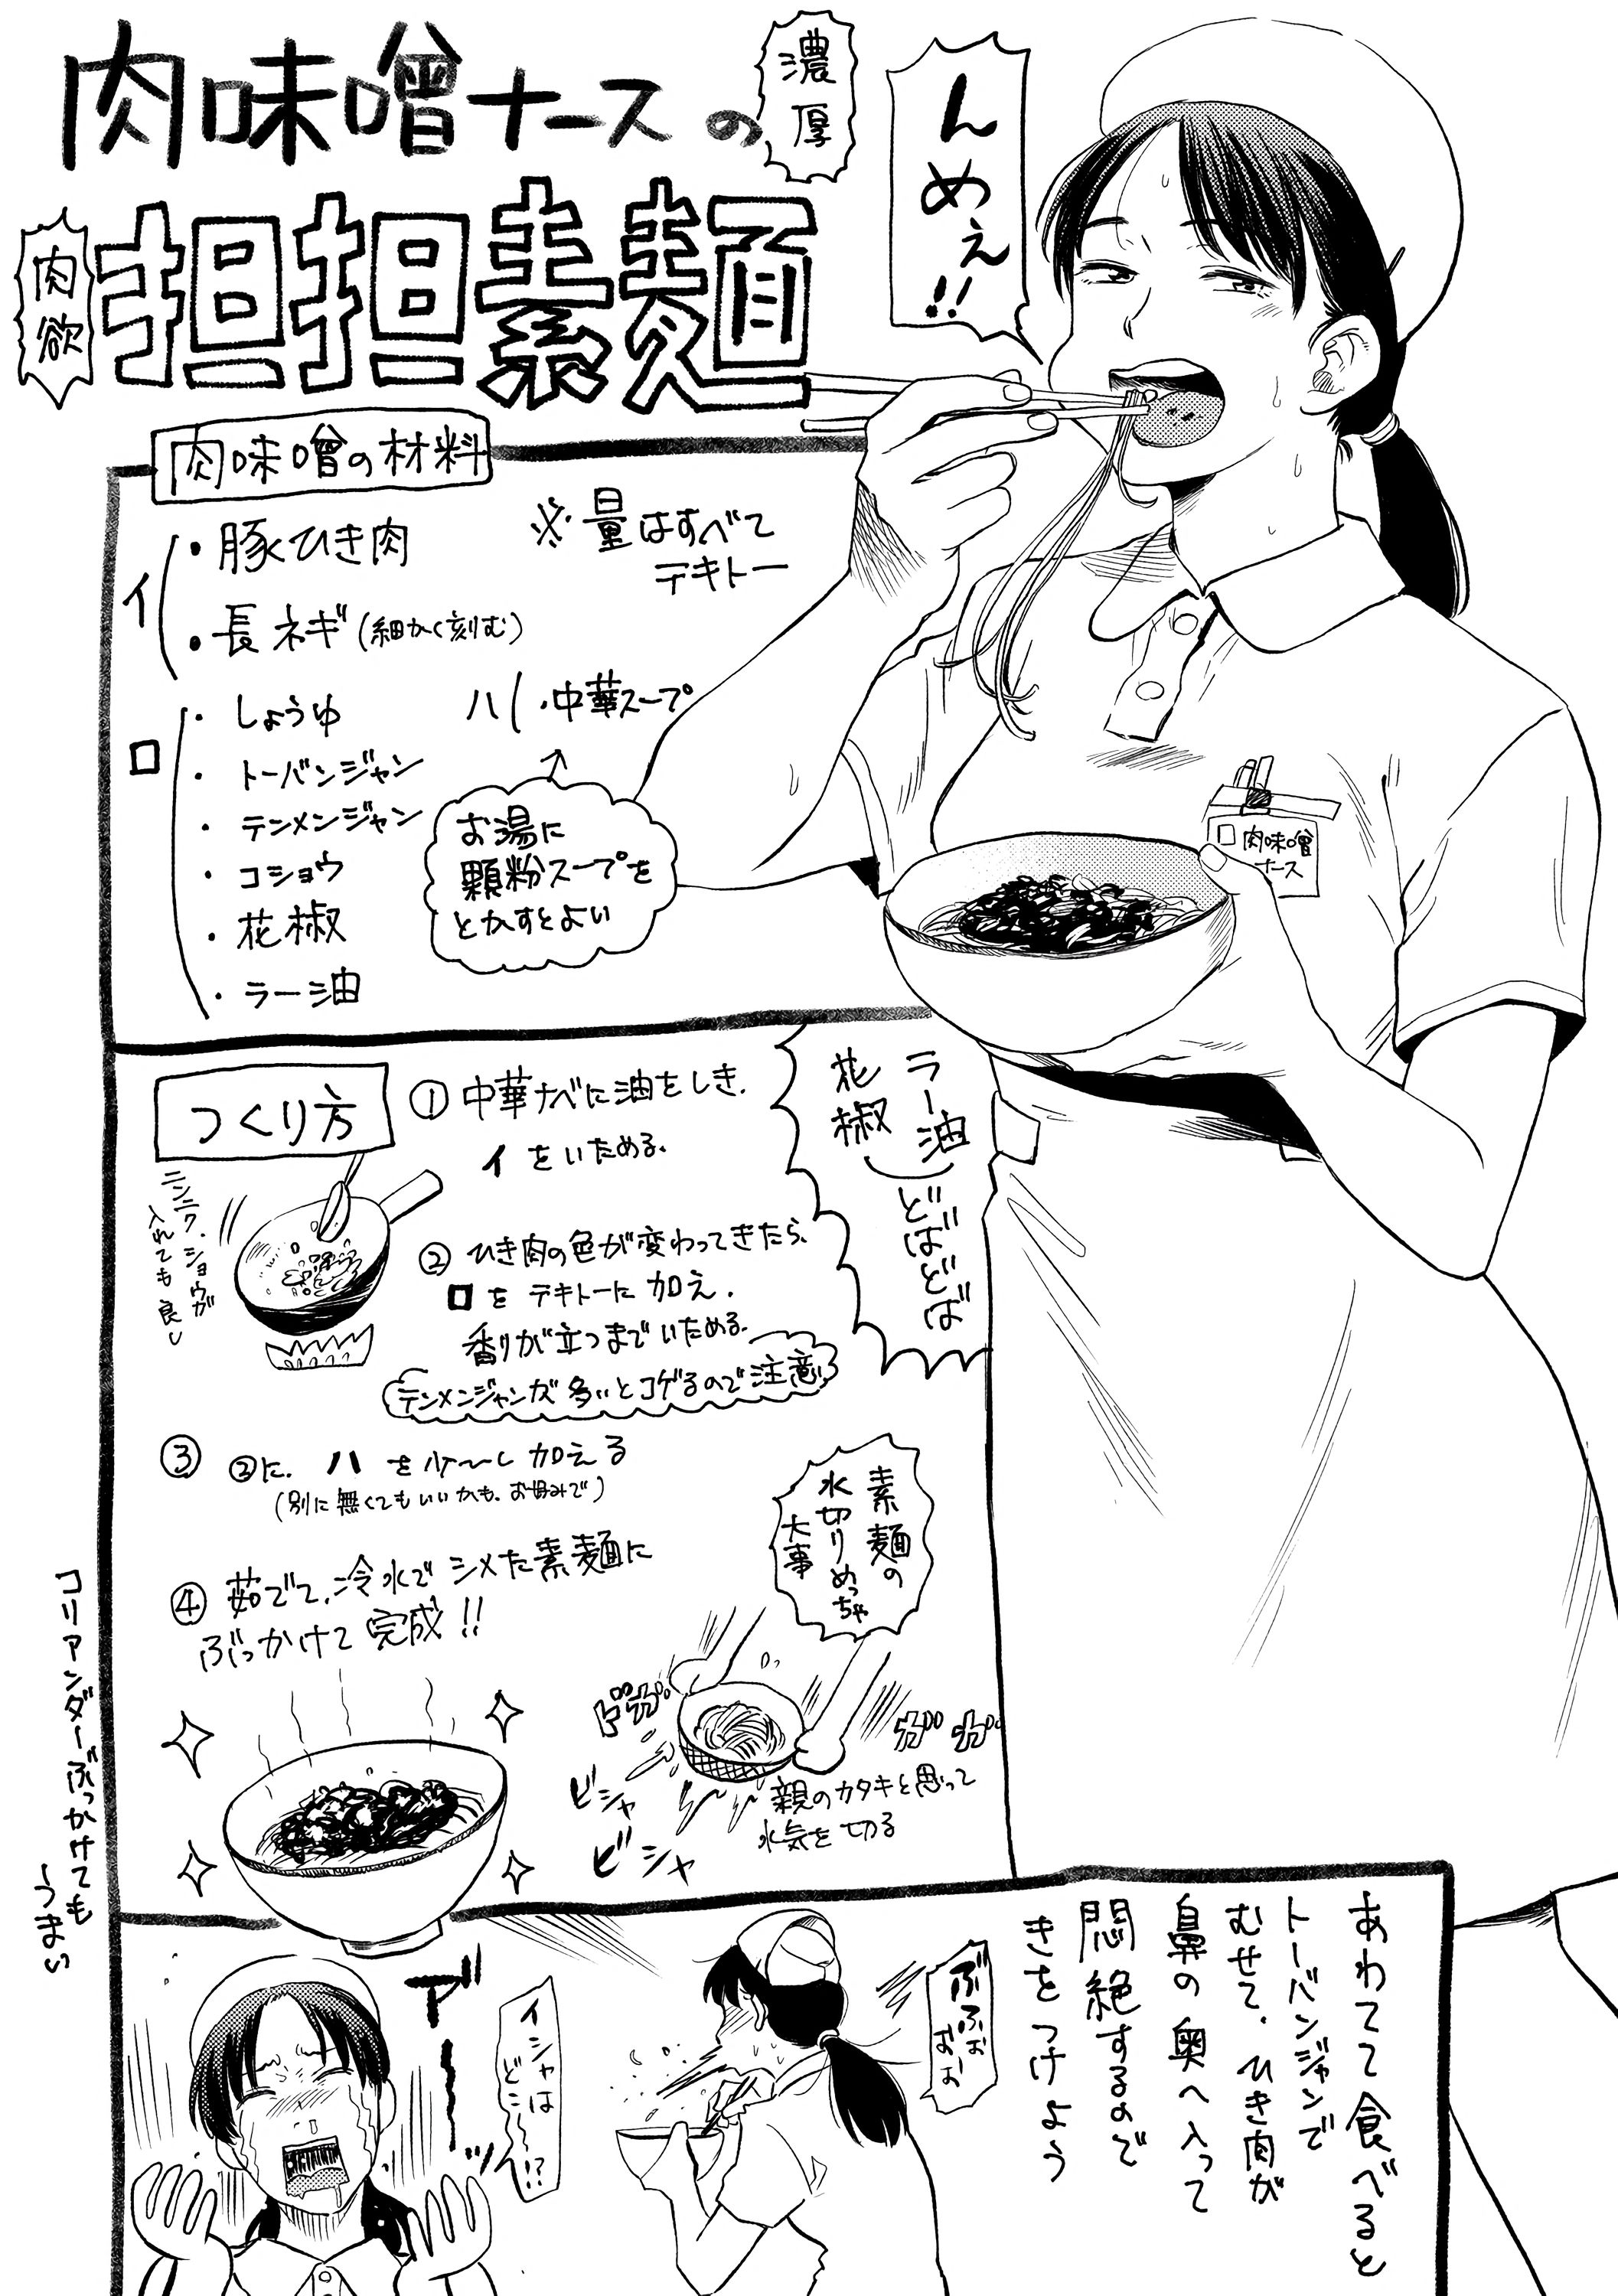 肉味噌ナースの
濃厚
肉欲
担担素麺
んめぇ!!
肉味噌の材料
※量はすべて
テキトー
イ
・豚ひき肉
・長ネギ(細かく刻む)
ロ
・しょうゆ
・トーバンジャン
・テンメンジャン
・コショウ
・花椒
・ラー油
ハ(・中華スープ
お湯に
顆粒スープを
とかすとよい
肉味噌
ナース
つくり方
①中華ナベに油をしき、
イをいためる。
ニンニク、ショウガ
入れても良し
②ひき肉の色が変わってきたら、
ロをテキトーに加え、
香りが立つまでいためる。
テンメンジャンが多いとコゲるので注意
ラー油
花椒
どばどば
③②に、ハを少〜し加える
(別に無くてもいいかも、お好みで)
④茹でて、冷水でシメた素麺に
ぶっかけて完成!!
素麺の
水切りめっちゃ
大事
ガガ
ビシャ
ビシャ
親のカタキと思って
水気を切る
コリアンダーぶっかけても
うまい
あわてて食べると
トーバンジャンで
むせて、ひき肉が
鼻の奥へ入って
悶絶するので
きをつけよう
ぶふぉ
おぉ
イシャは
どこ〜!?
アーーッ